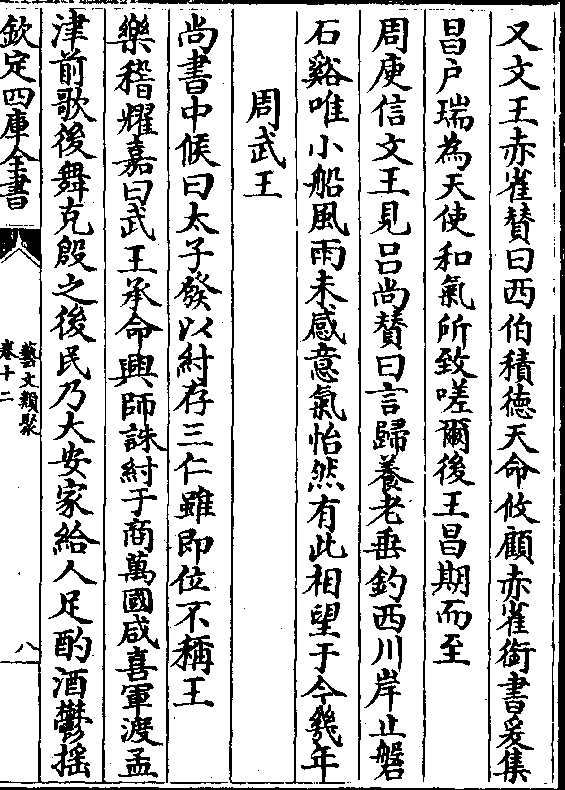 又文王赤雀賛曰西伯積徳天命攸顧赤雀銜書爰集
昌户瑞為天使和氣所致嗟爾後王昌期而至
周庾信文王見吕尚賛曰言歸養老垂釣西川岸止磻
石谿唯小船風雨未感意氣怡然有此相望于今幾年
周武王
尚書中候曰太子發以紂存三仁雖即位不稱王
樂稽耀嘉曰武王承命興師誅紂于商萬國咸喜軍渡孟
津前歌後舞克殷之後民乃大安家給人足酌酒鬱搖
欽定四庫全書
藝文類聚
卷十二
八